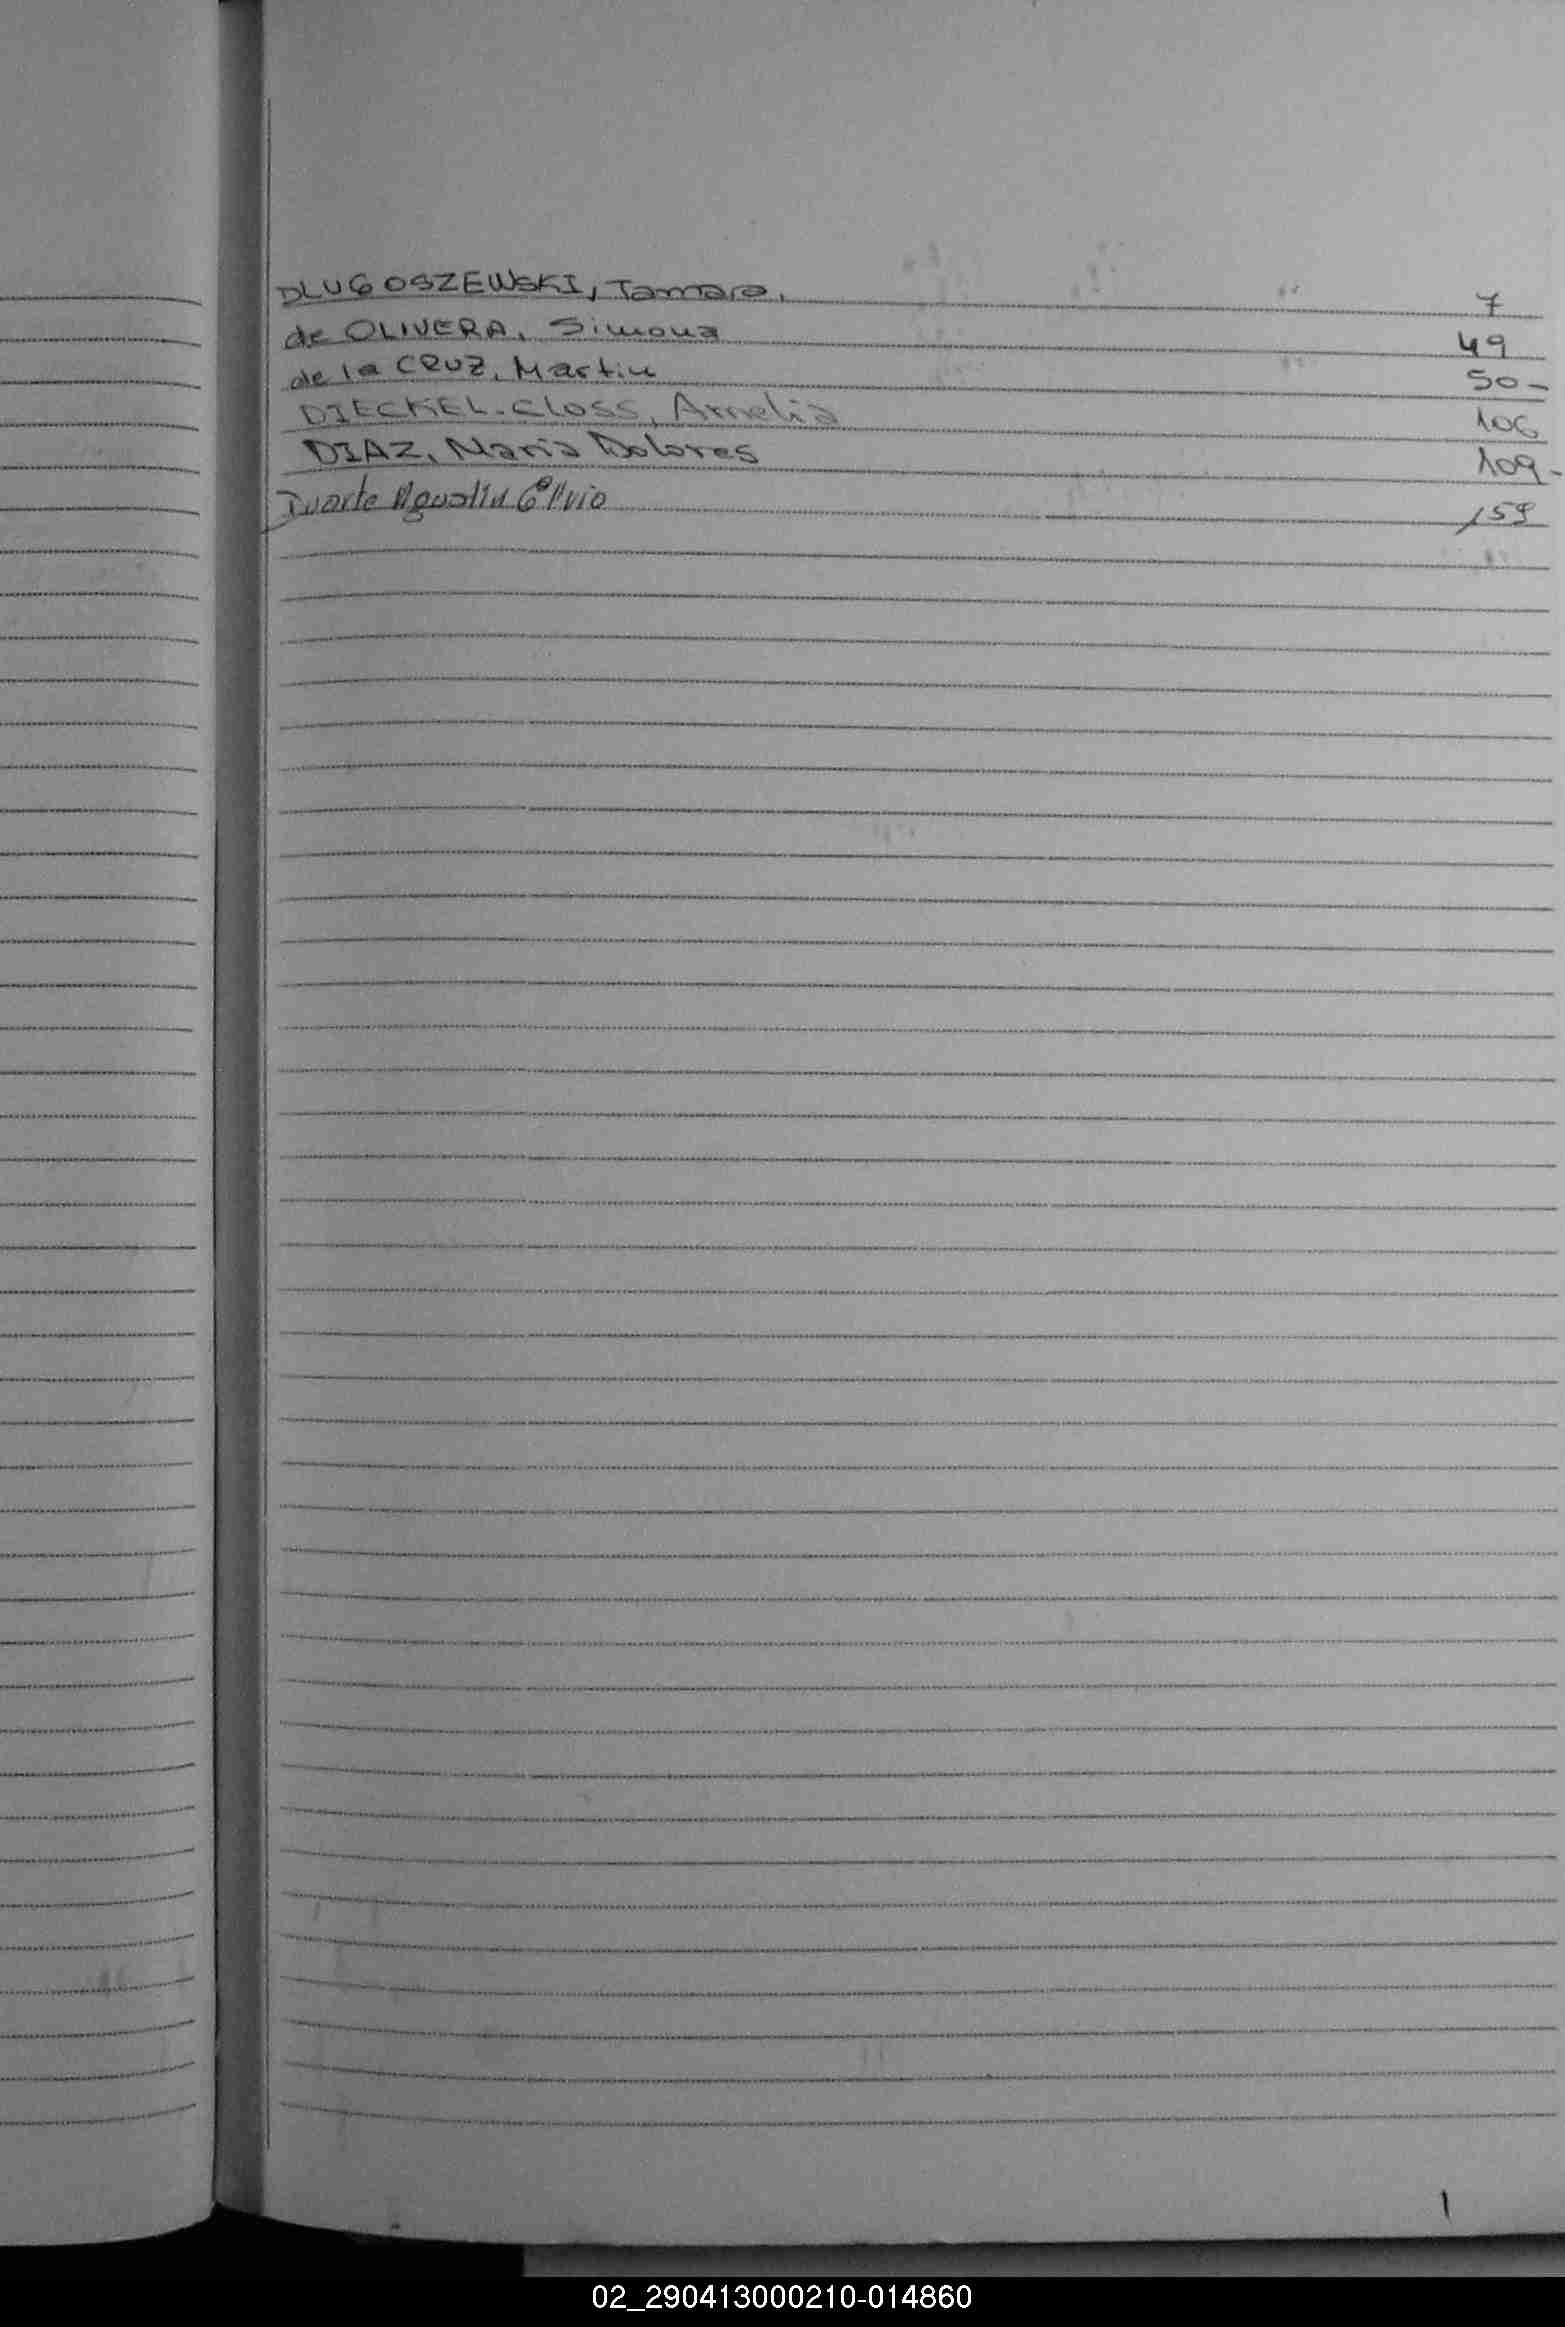 DLUGOSZEWSKI, Tamara. 7
de OLIVERA, Simona 49
de la CRUZ, Martin 50-
DIECKEL-Closs, Amelia 106
DIAZ, Maria Dolores 109-
Duarte Agustin 159
1
02_290413000210-014860